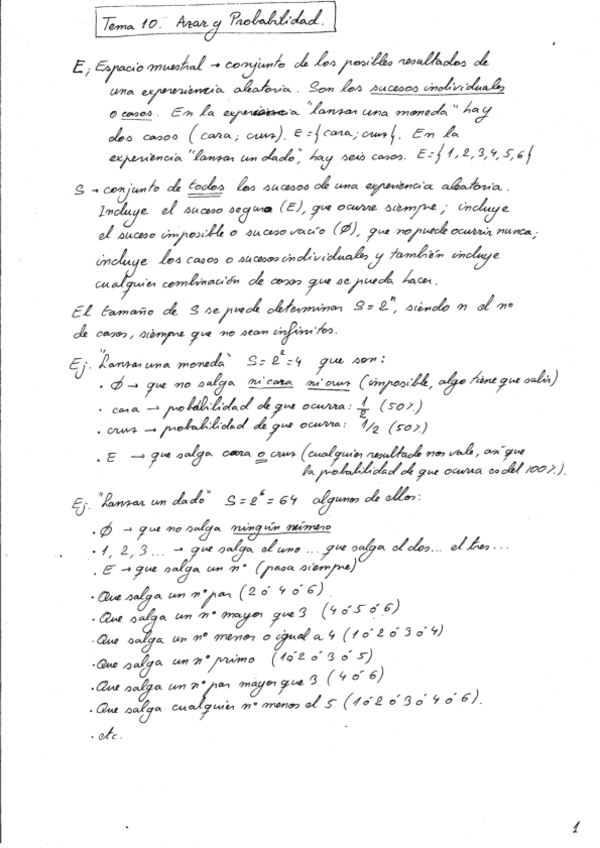 Tema 10. Azar y Probabilidad.
E; Espacio muestral → conjunto de los posibles resultados de
una expereriencia aleatoria. Son los sucesos individuales
o casos. En la experiencia "lanzar una moneda" hay
dos casos (cara; cruz). E={cara; cruz}. En la
experiencia "lanzar un dado", hay seis casos. E={1,2,3,4,5,6}
S → conjunto de todos los sucesos de una experiencia aleatoria.
Incluye el suceso seguro (E), que ocurre siempre; incluye
el suceso imposible o suceso vacío (Ø), que no puede ocurrir nunca;
incluye los casos o sucesos individuales y también incluye
cualquier combinación de casos que se pueda hacer.
El tamaño de S se puede determinar S=2ⁿ, siendo n el nº
de casos, siempre que no sean infinitos.
Ej. "Lanzar una moneda" S=2²=4 que son:
· Ø → que no salga ni cara ni cruz (imposible, algo tiene que salir)
· cara → probabilidad de que ocurra: 1/2 (50%)
· cruz → probabilidad de que ocurra: 1/2 (50%)
· E → que salga cara o cruz (cualquier resultado nos vale, así que
la probabilidad de que ocurra es del 100%).
Ej. "Lanzar un dado" S=2⁶=64 algunos de ellos:
· Ø → que no salga ningún número
· 1, 2, 3... → que salga el uno... que salga el dos... el tres...
· E → que salga un nº (pasa siempre)
· Que salga un nº par (2 ó 4 ó 6)
· Que salga un nº mayor que 3 (4 ó 5 ó 6)
· Que salga un nº menor o igual a 4 (1 ó 2 ó 3 ó 4)
· Que salga un nº primo (1 ó 2 ó 3 ó 5)
· Que salga un nº par mayor que 3 (4 ó 6)
· Que salga cualquier nº menos el 5 (1 ó 2 ó 3 ó 4 ó 6).
· etc.
1